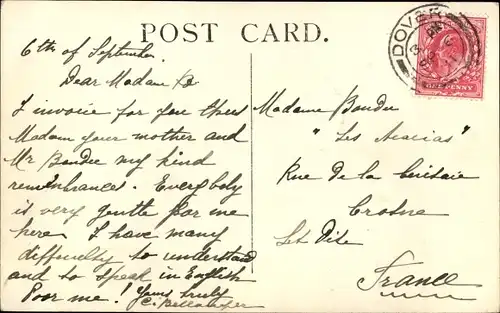 POST CARD.
6th of September
Dear Madame B
I invoice for you thus
Madam your mother and
Mr Boudee my kind
remembrances. Everybody
is very gentle for me
here. I have many
difficultly to understand
and to speak in English
Poor me! Yours truly
C.
Madame Boudee
"Les Acacias"
Rue de la
Crosne
Set Oise
France
DOVER
ONE PENNY